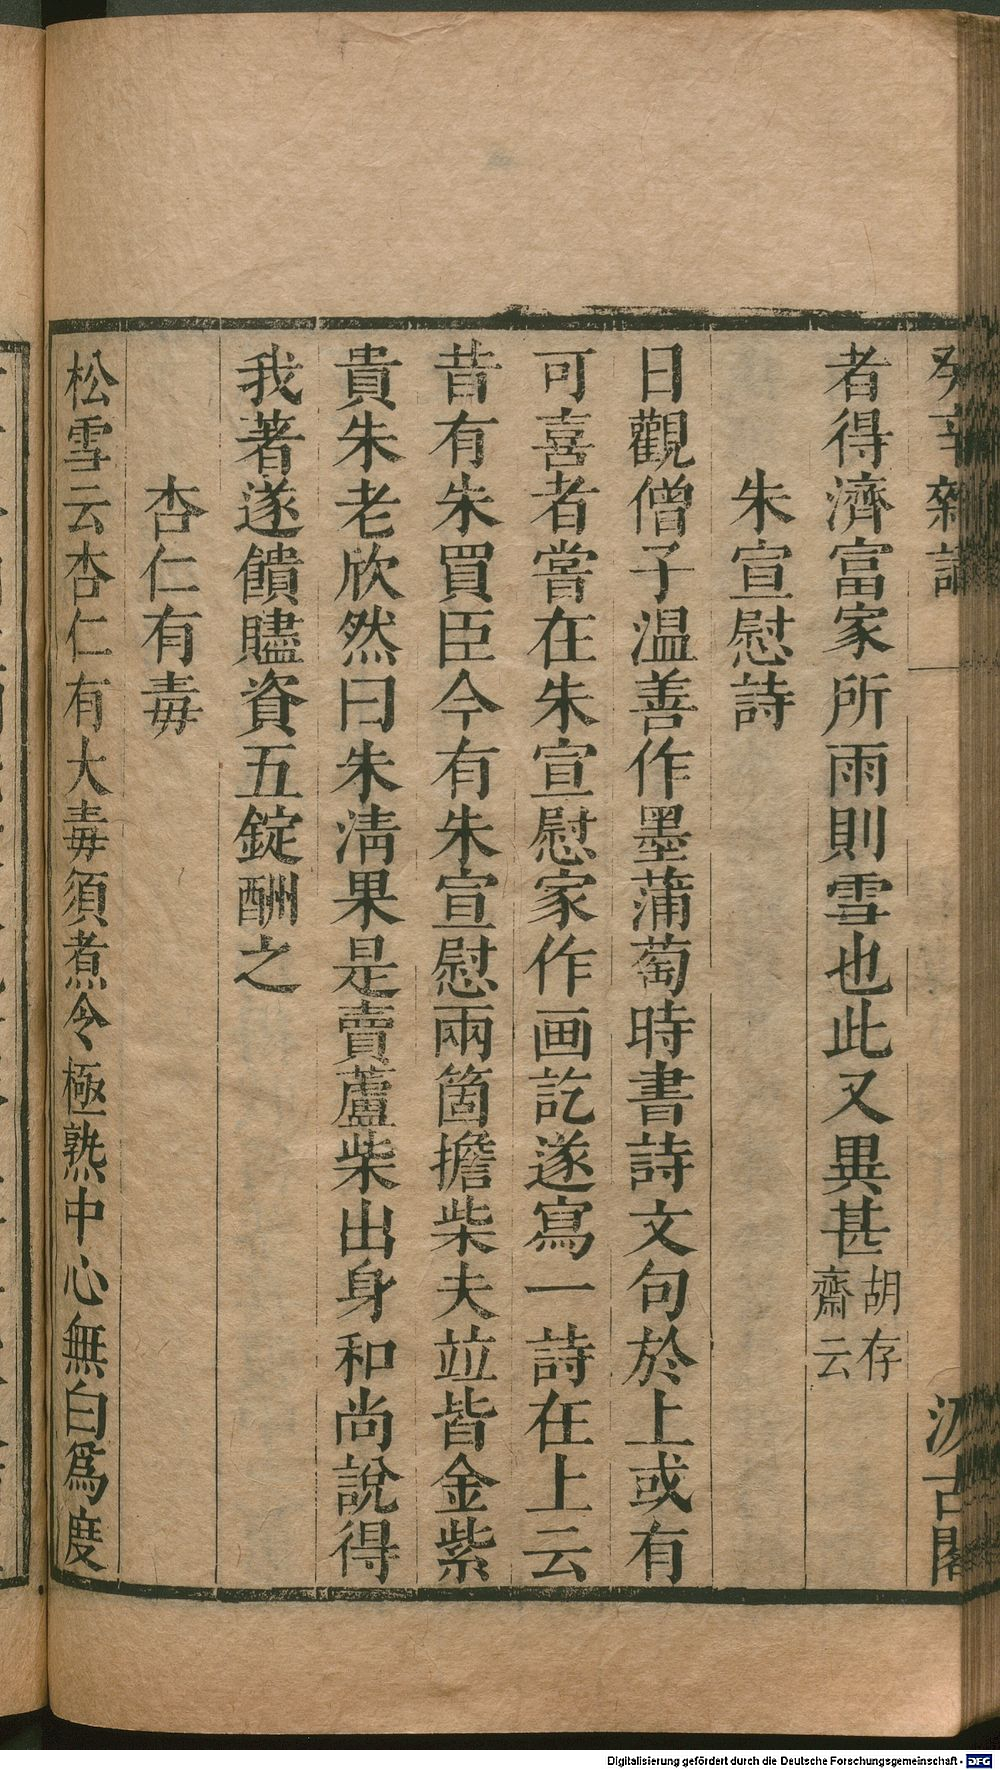 癸辛雜識
汲古閣
者得濟富家所雨則雪也此又異甚胡存齋云
朱宣慰詩
日觀僧子温善作墨蒲萄時書詩文句於上或有
可喜者嘗在朱宣慰家作画訖遂寫一詩在上云
昔有朱買臣今有朱宣慰兩箇擔柴夫竝皆金紫
貴朱老欣然曰朱淸果是賣蘆柴出身和尚說得
我著遂饋贐資五錠酬之
杏仁有毒
松雪云杏仁有大毒須煮令極熟中心無白爲度
Digitalisierung gefördert durch die Deutsche Forschungsgemeinschaft - DFG